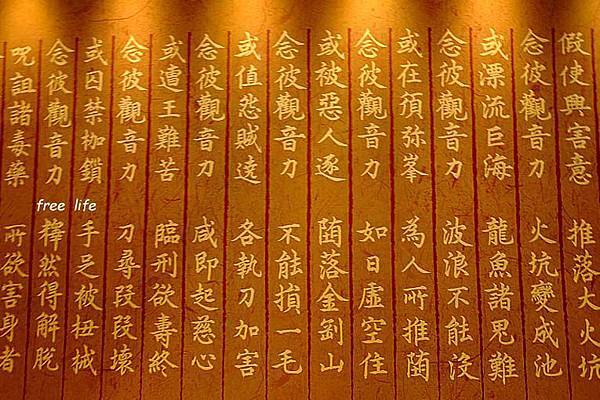 假使興害意 推落大火坑
念彼觀音力 火坑變成池
或漂流巨海 龍魚諸鬼難
念彼觀音力 波浪不能沒
或在須弥峯 為人所推墮
念彼觀音力 如日虛空住
或被惡人逐 墮落金剛山
念彼觀音力 不能損一毛
或值怨賊遶 各執刀加害
念彼觀音力 咸即起慈心
或遭王難苦 臨刑欲壽終
念彼觀音力 刀尋段段壞
或囚禁枷鎖 手足被杻械
念彼觀音力 釋然得解脫
咒詛諸毒藥 所欲害身者
free life